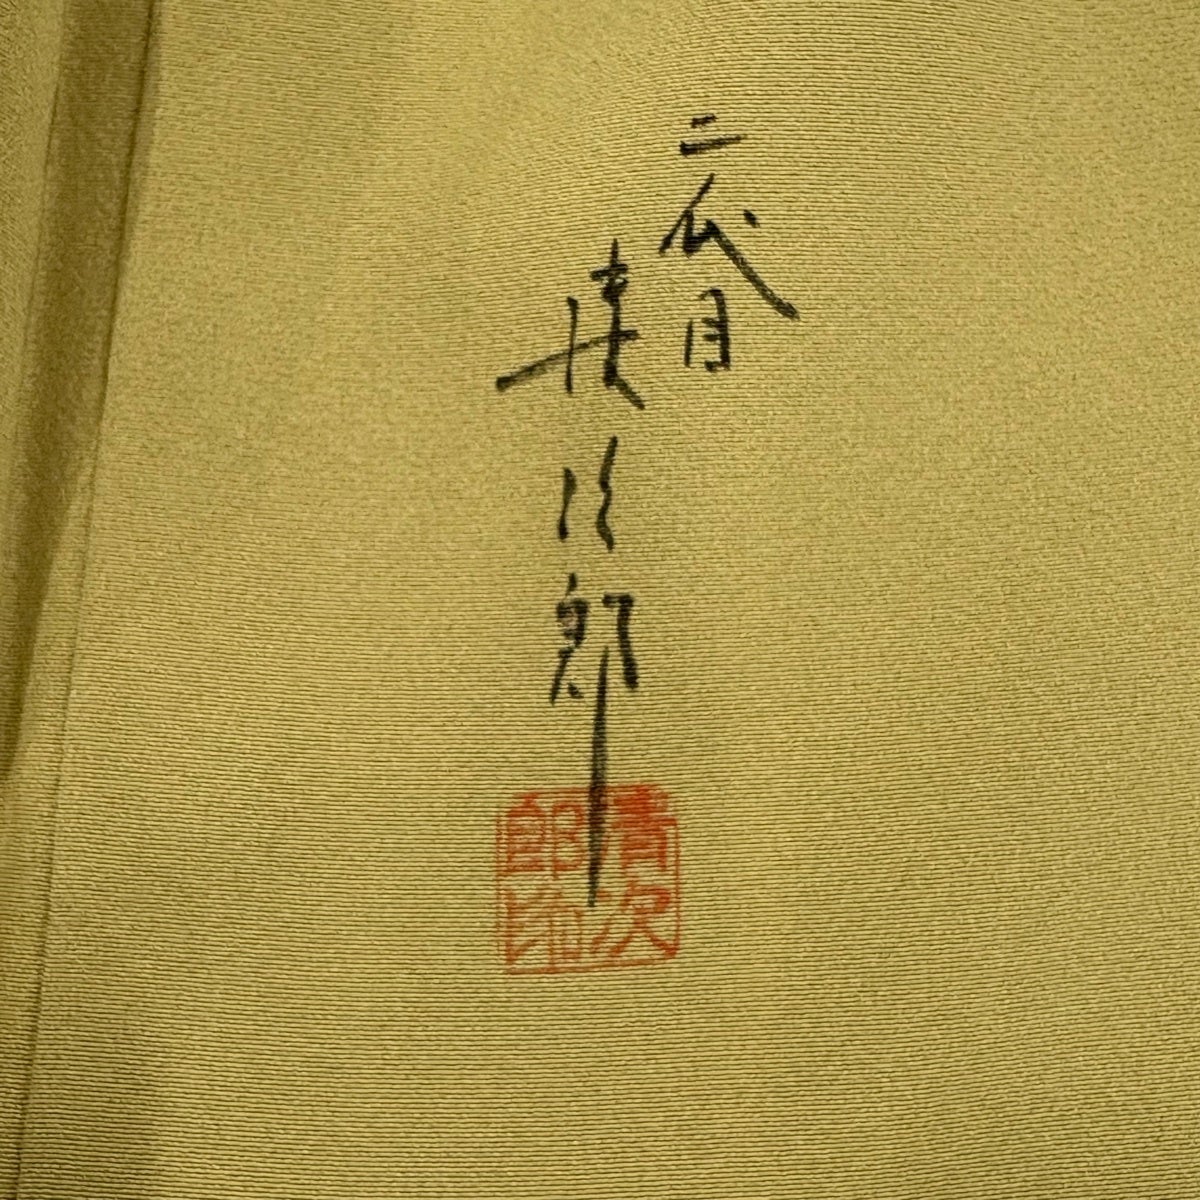 二代目
清次郎
清次
郎